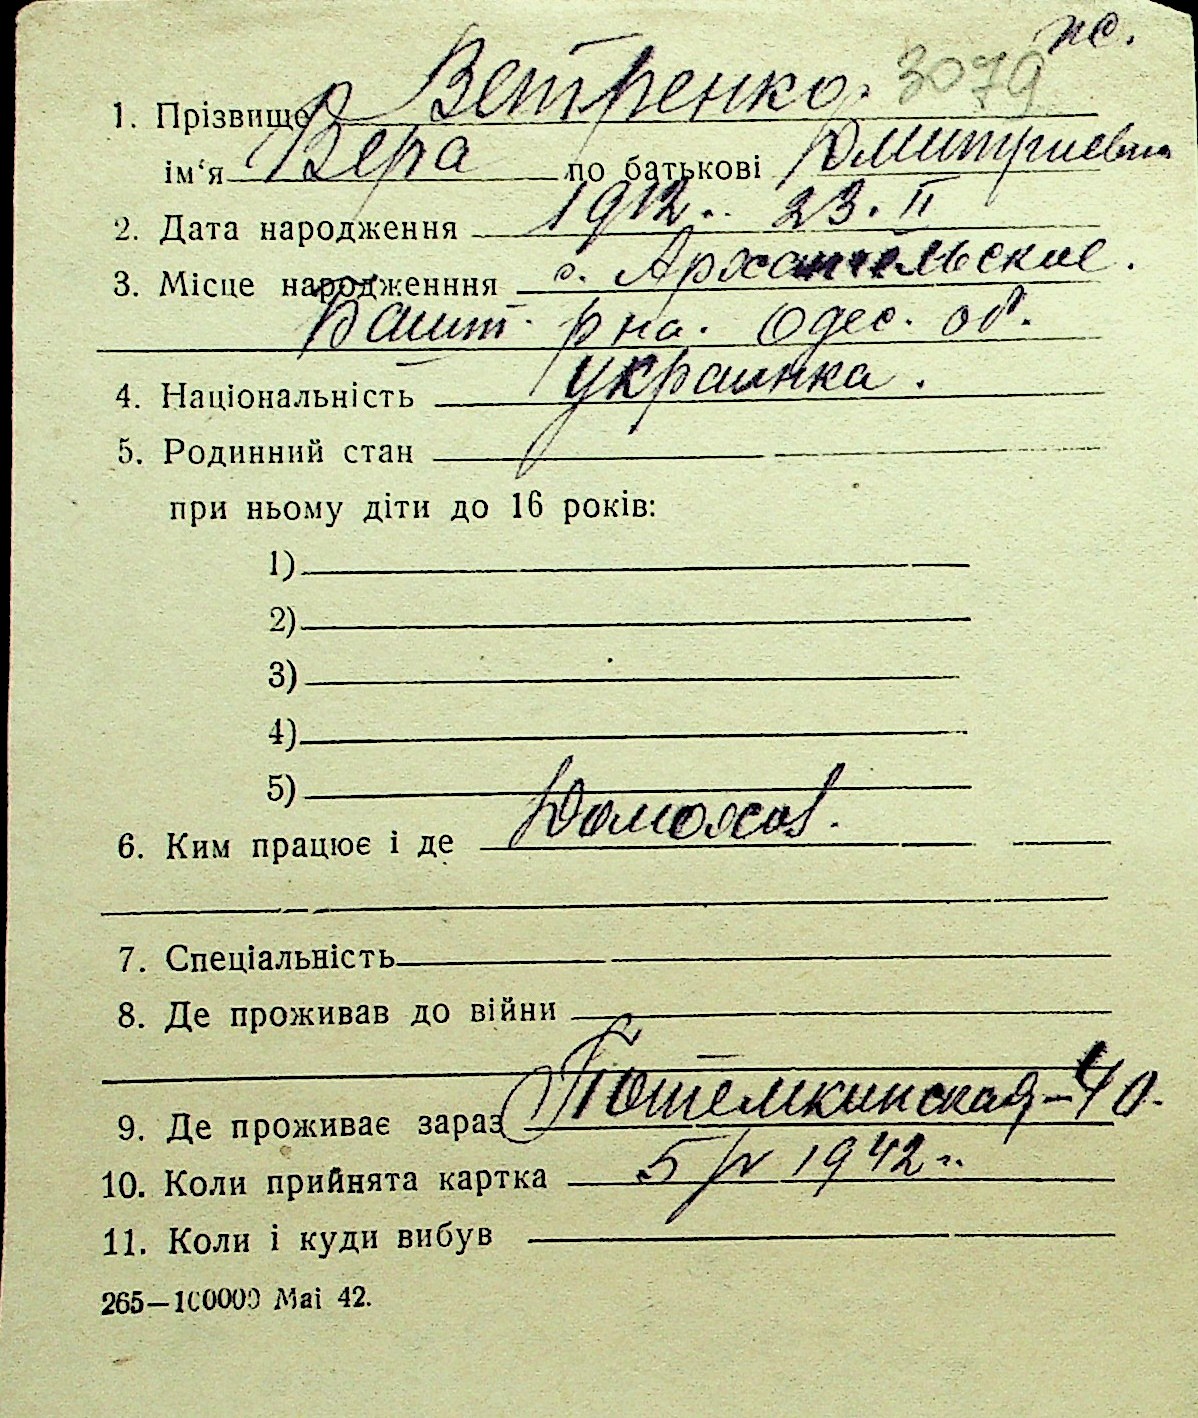 пс.
3079
1. Прізвище Ветренко.
ім‘я Вера по батькові Дмитриевна
2. Дата народження 1912.. 23. II
3. Місце народженння с. Архангельские.
Башт. р на. Одес. об.
4. Національність украинка.
5. Родинний стан
при ньому діти до 16 років:
1)
2)
3)
4)
5)
6. Ким працює і де Домохоз.
7. Спеціальність
8. Де проживав до війни
9. Де проживає зараз Потемкинская-40.
10. Коли прийнята картка 5/V 1942..
11. Коли і куди вибув
265—100000 Mai 42.